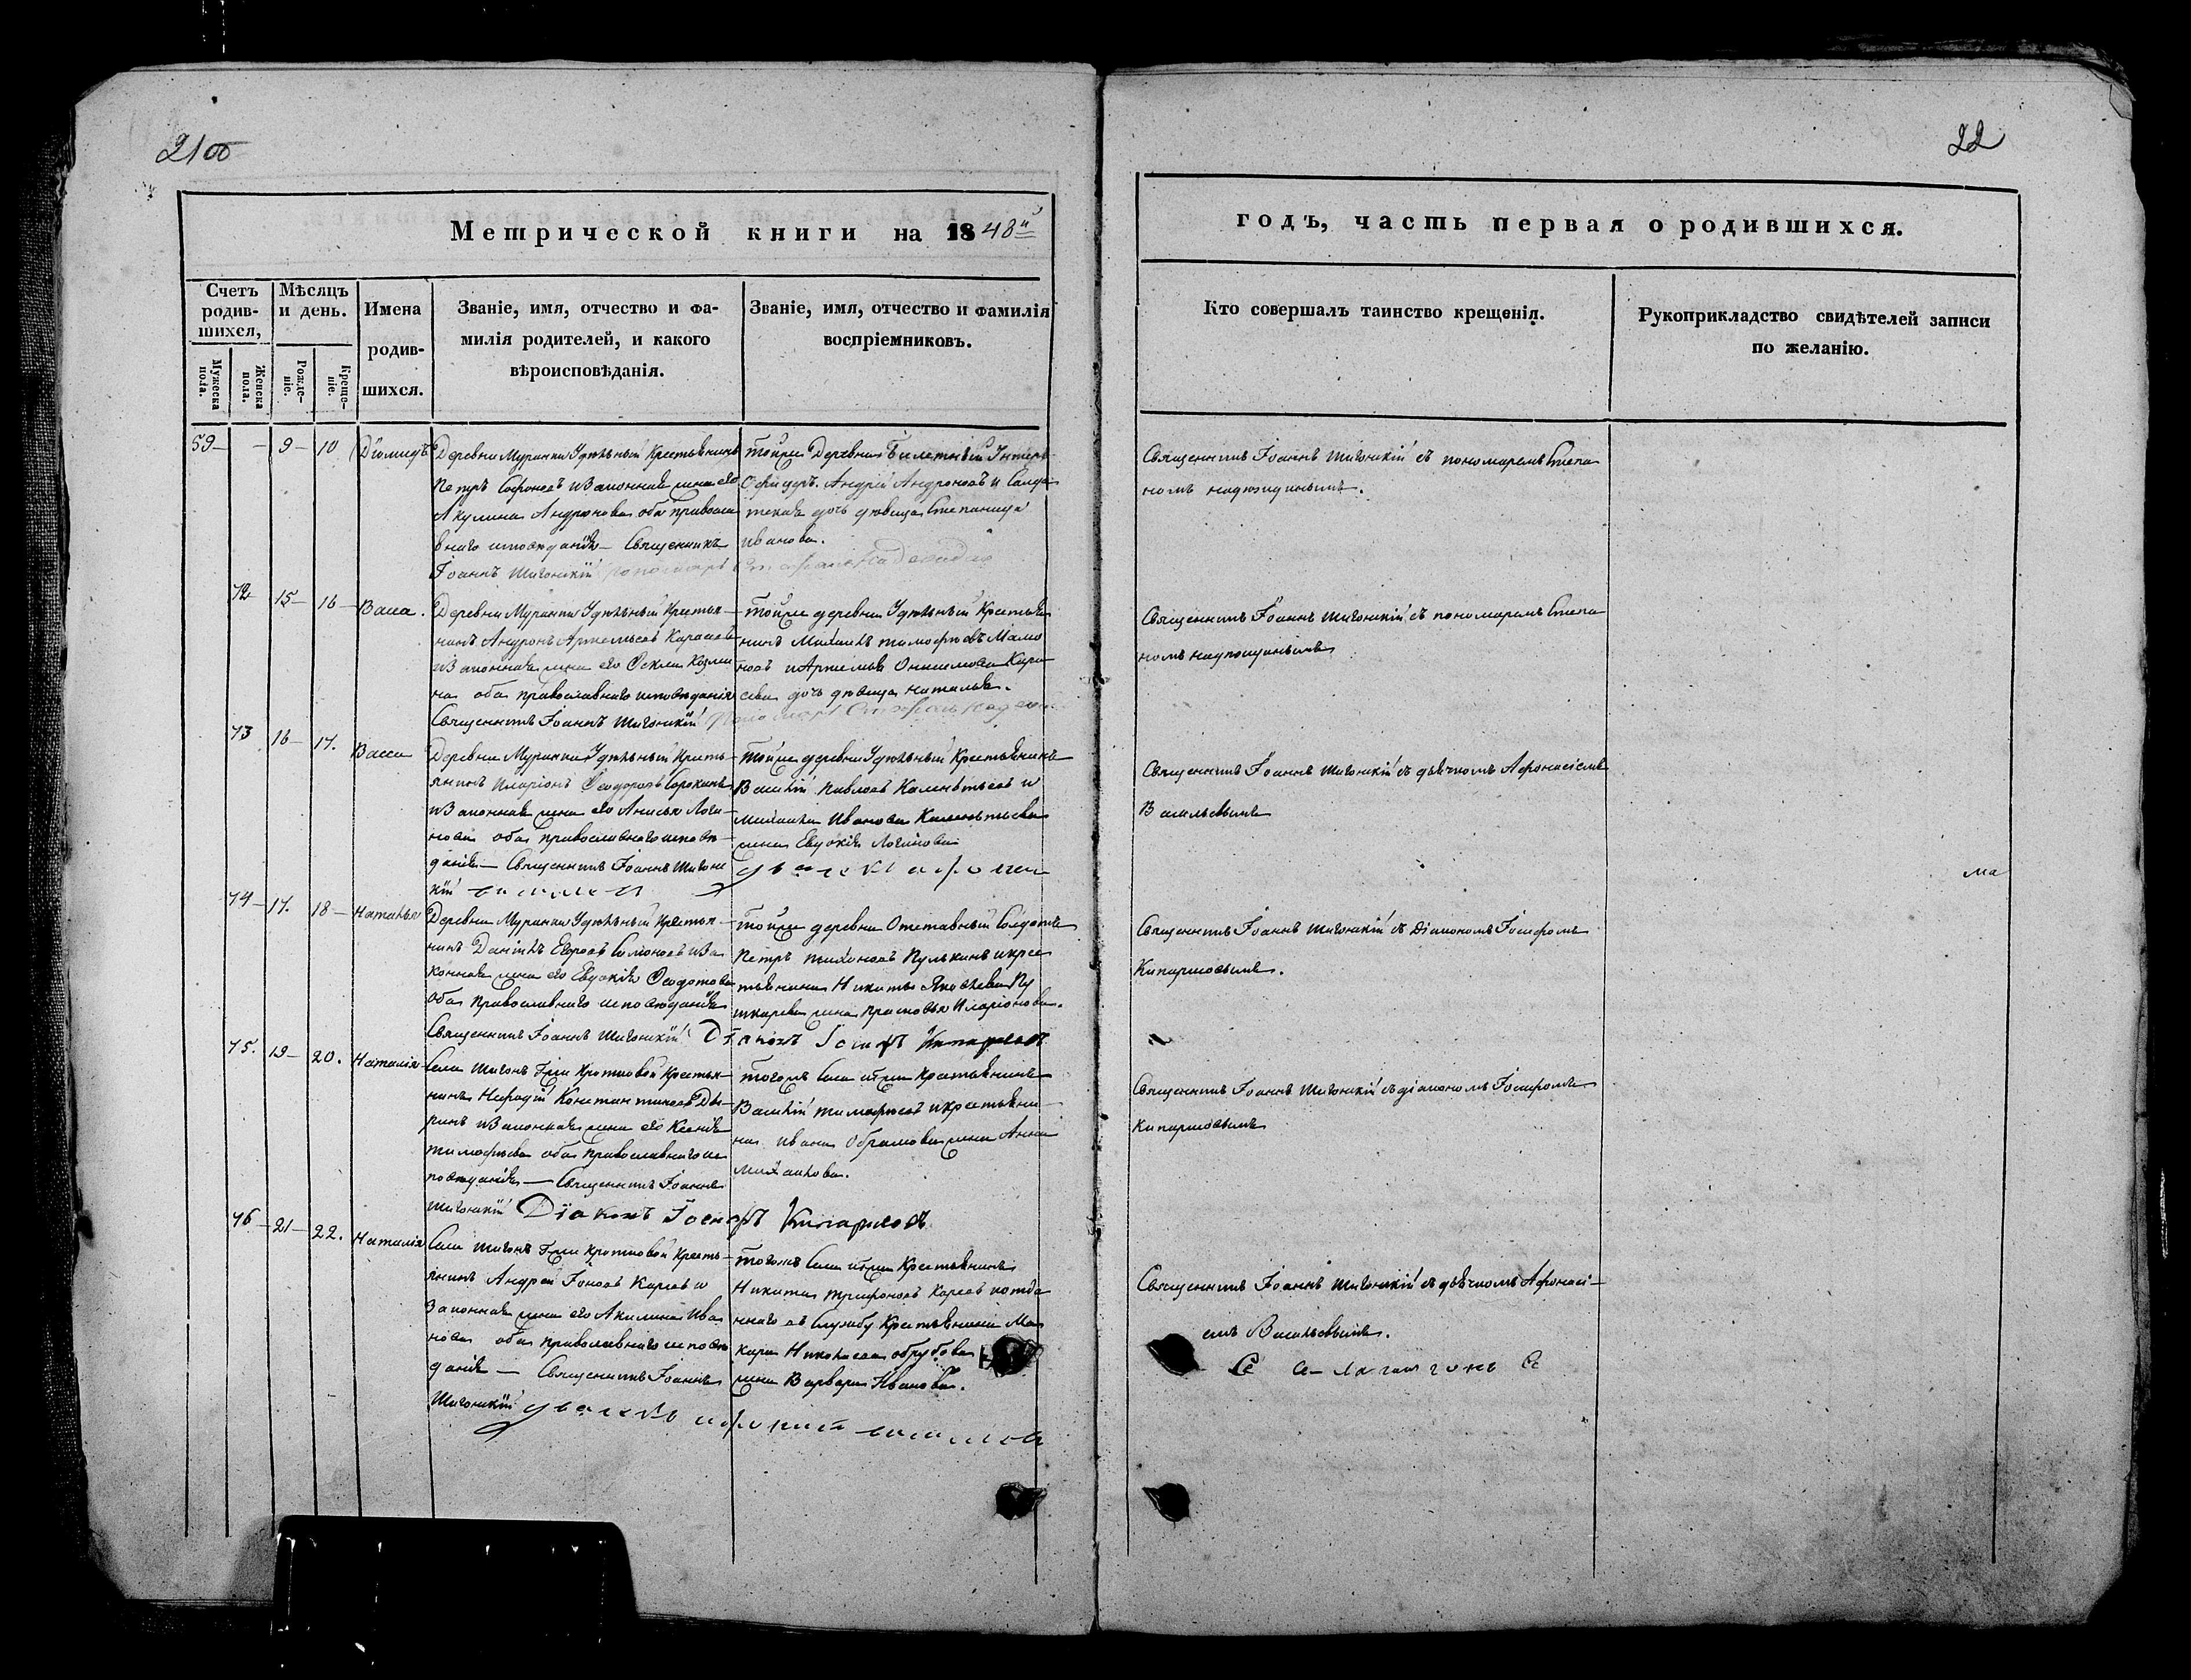 21 об
22
Метрической книги на 1848й
годъ, часть первая о родившихся.
Счетъ родив-шихся,
Мужеска пола.
Женска пола.
Мѣсяцъ и день.
Рожде-ніе.
Креще-ніе.
Имена родив-шихся.
Званіе, имя, отчество и фа-
милія родителей, и какого
вѣроисповѣданія.
Званіе, имя, отчество и фамилія
воспріемниковъ.
Кто совершалъ таинство крещенія.
Рукоприкладство свидѣтелей записи
по желанію.
59 — — 9 — 10 Діомидъ
Деревни Муранки Удѣльный Крестьянинъ
Петръ Софоновъ и Законная жена его
Акулина Андреева оба православ
внаго исповѣданія — Священникъ
Іоаннъ Шигонскій
тойже Деревни Билетный Унтеръ
Офицеръ Андрей Андроновъ и Солда
тская дочь дѣвица Степанида
Иванова.
Священникъ Іоаннъ Шигонскій съ пономаремъ Степа
номъ
72 15 — 16 — Васса.
Деревни Муранки Удѣльный Крестья-
нинъ Андронъ Артемьевъ Карасевъ
и Законная жена его Фекла Козми
на оба православнаго исповѣданія
Священникъ Іоаннъ Шигонскій
тойже деревни Удѣльный Крестья
нинъ Михаилъ Тимофѣевъ Мамо
новъ и Артемья Онисимова Кара
сева дочь дѣвица Наталья.
Священникъ Іоаннъ Шигонскій съ пономаремъ Степа
номъ
73 16 — 17. Васса
Деревни Муранки Удѣльный Кресть-
янинъ Иларіонъ Ѳеодоровъ Сорокинъ
и Законная жена его Анисья Логи-
нова оба православнаго исповѣ-
данія — Священникъ Іоаннъ Шигонс
кій
тойже деревни Удѣльный Крестьянинъ
Василій Павловъ Калентьевъ и
Михаила Иванова Калентьева
жена Евдокія Логинова
Священникъ Іоаннъ Шигонскій съ дьячкомъ Афонасіемъ
Васильевымъ
74 — 17. 18 — Наталья
Деревни Муранки Удѣльный Крестья-
нинъ Данилъ Егоровъ Солоновъ и За
конная жена его Евдокія Ѳеодотова
оба православнаго исповѣданія
Священникъ Іоаннъ Шигонскій Діаконъ Іосифъ Кипарисовъ
тойже деревни Отставный Солдатъ
Петръ Тихоновъ Пулькинъ и крес
тьянина Никиты Яковлева Пу
шкарева жена Прасковья Иларіонова.
Священникъ Іоаннъ Шигонскій съ Діакономъ Іосифомъ
Кипарисовымъ.
75. 19 — 20. Наталія
Села Шигонъ Г-жи Кротковой Крестья-
нинъ Нефодій Константиновъ Ды-
ринъ и Законная жена его Ксенія
Тимофѣева оба православнаго ис
повѣданія — Священникъ Іоаннъ
Шигонскій Діаконъ Іосифъ Кипарисовъ
тогожъ Села и Г-жи Крестьянинъ
Василій Тимофѣевъ и крестьяни-
на Ивана Обрамова жена Анна
Михайлова.
Священникъ Іоаннъ Шигонскій съ діакономъ Іосифомъ
Кипарисовымъ
76 — 21 — 22. Наталія
Села Шигонъ Г-жи Кротковой Кресть-
янинъ Андрей Іоновъ Карсевъ и
Законная жена его Акилина Ива
нова оба православнаго исповѣ
данія — Священникъ Іоаннъ
Шигонскій
тогожъ Села и Г-жи Крестьянинъ
Никита Трифоновъ Карсевъ и отда
ннаго въ Службу Крестьянина Ма
кара Николаева
жена Варвара Иванова.
Священникъ Іоаннъ Шигонскій съ дьячкомъ Афонасі-
емъ Васильевымъ.